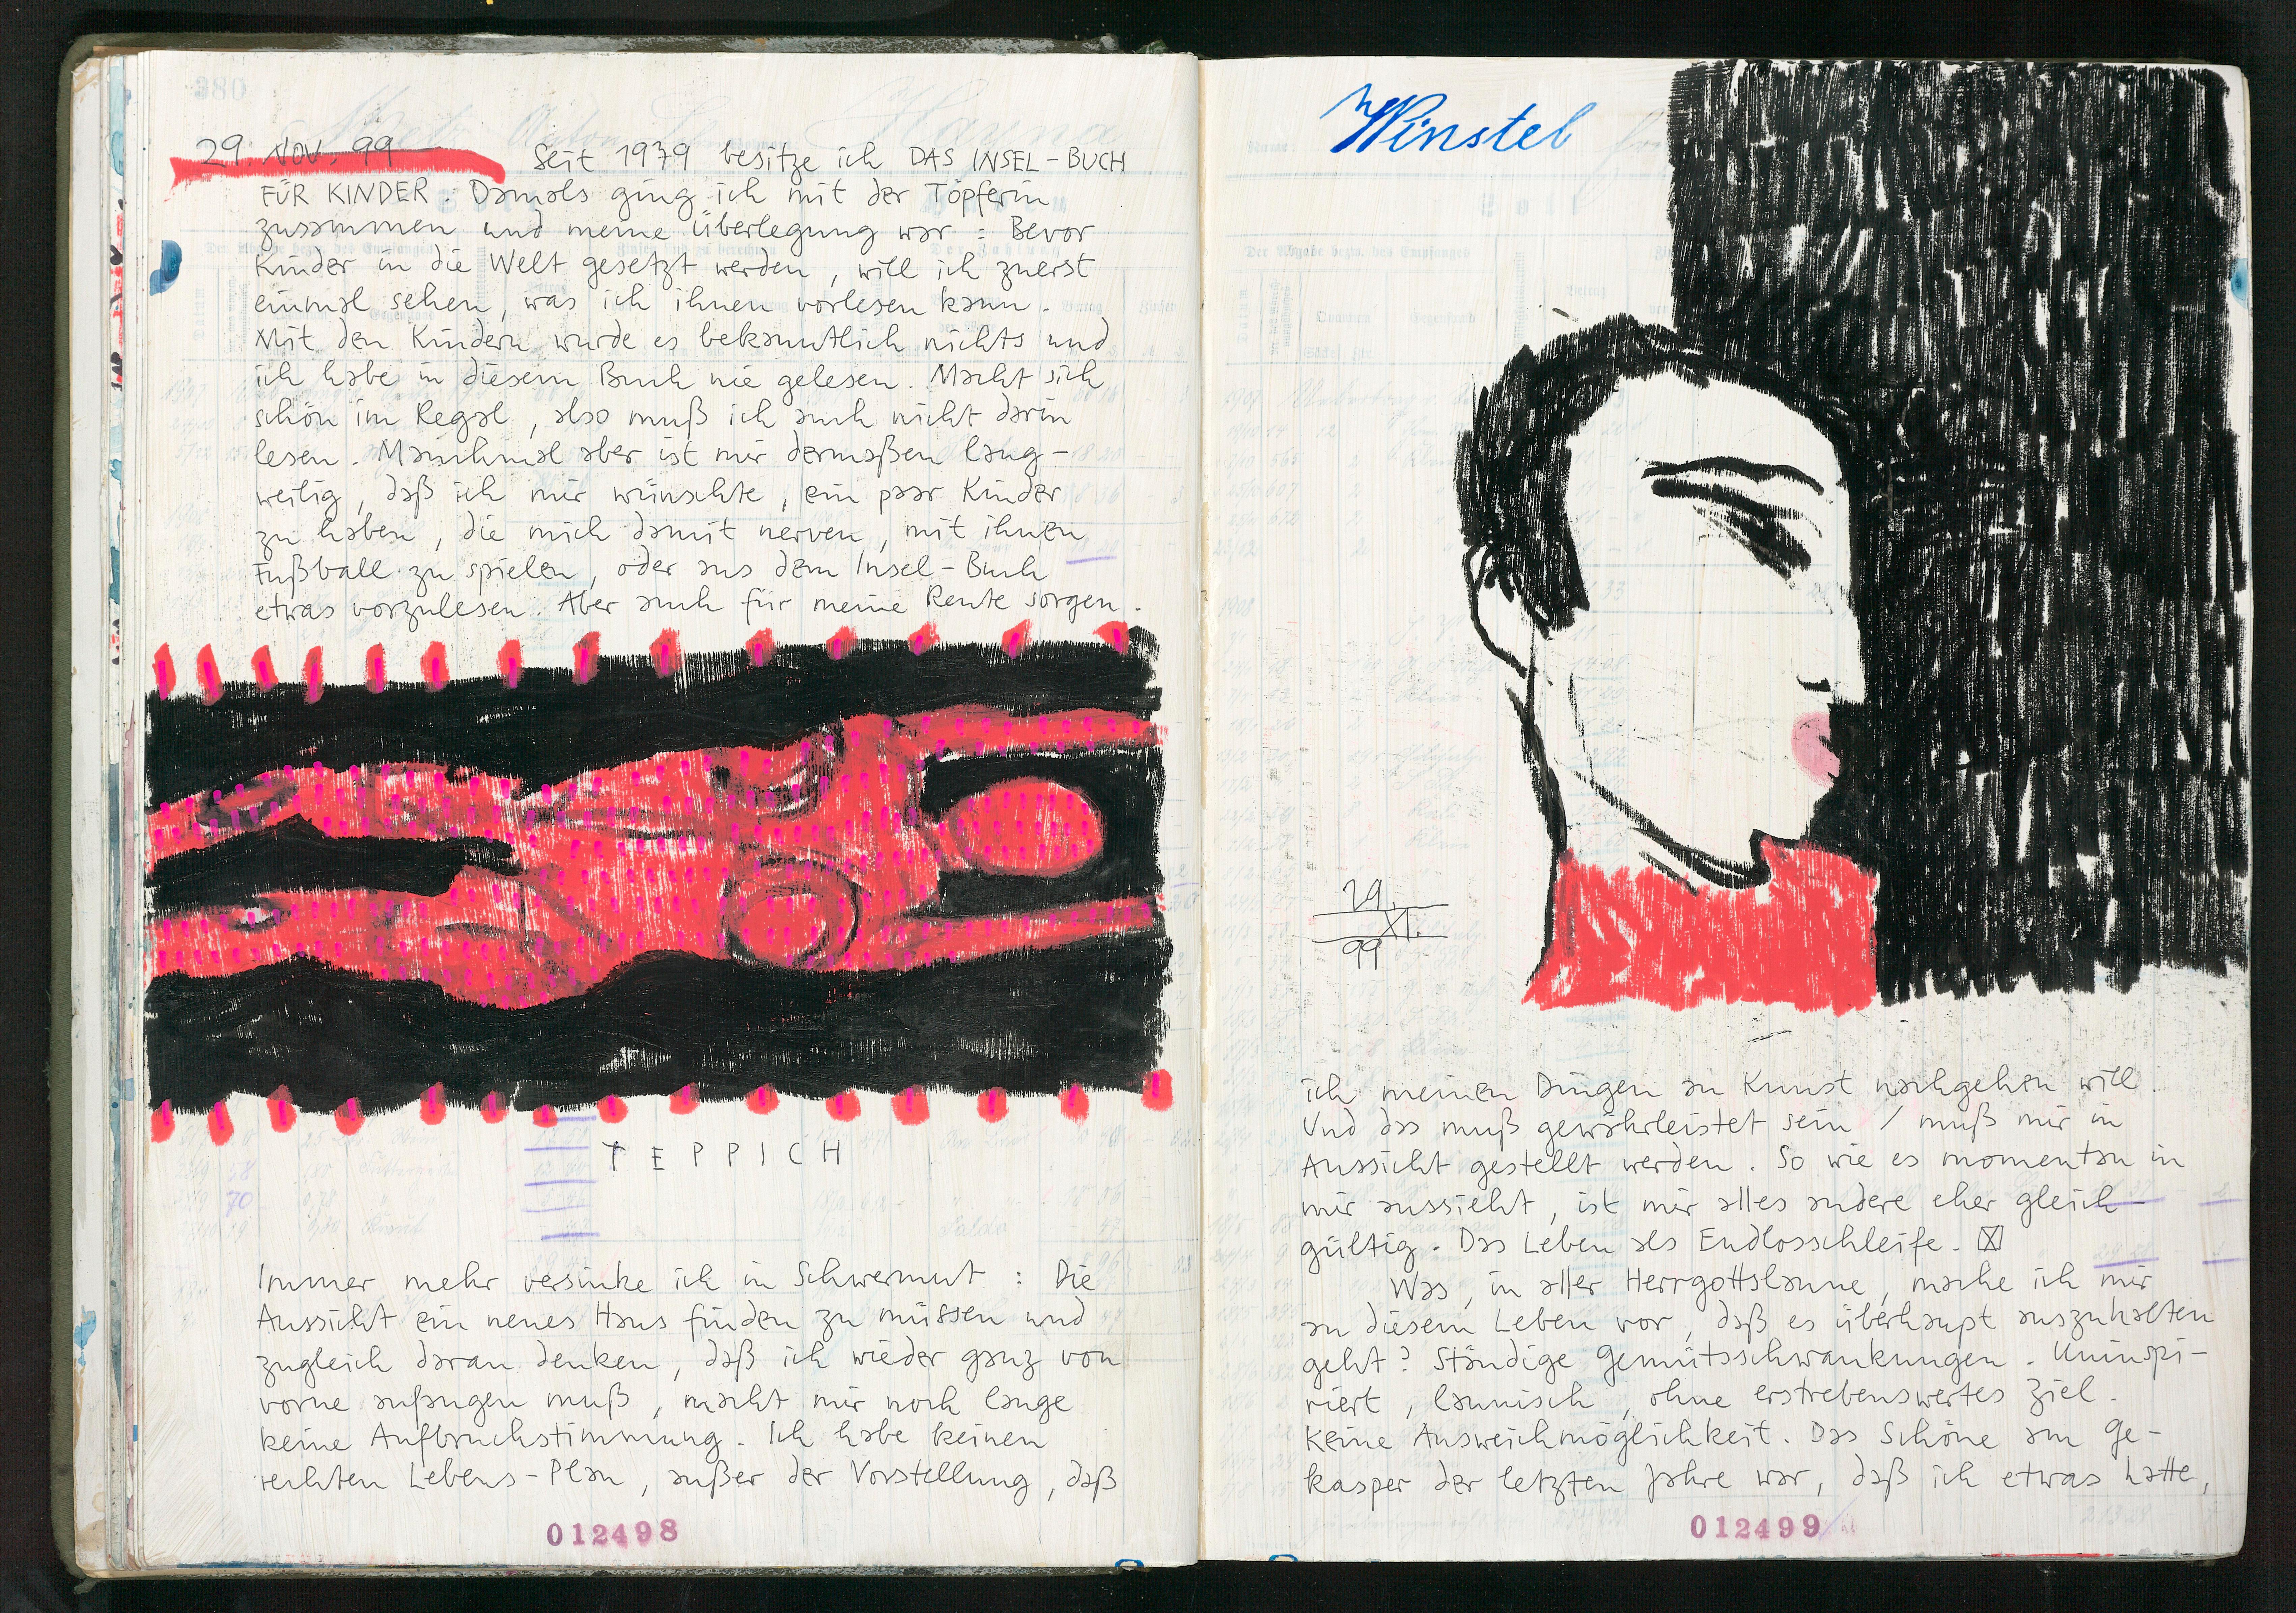 29. NOV. 99 Seit 1979 besitze ich DAS INSEL-BUCH
FÜR KINDER. Damals ging ich mit der Töpferin
zusammen und meine Überlegung war: Bevor
Kinder in die Welt gesetzt werden, will ich zuerst
einmal sehen, was ich ihnen vorlesen kann.
Mit den Kindern wurde es bekanntlich nichts und
ich habe in diesem Buch nie gelesen. Macht sich
schön im Regal, also muß ich auch nicht darin
lesen. Manchmal aber ist mir dermaßen lang-
weilig, daß ich mir wünschte, ein paar Kinder
zu haben, die mich damit nerven, mit ihnen
Fußball zu spielen, oder aus dem Insel-Buch
etwas vorzulesen. Aber auch für meine Rente sorgen.
TEPPICH
Immer mehr versinke ich in Schwermut: Die
Aussicht ein neues Haus finden zu müssen und
zugleich daran denken, daß ich wieder ganz von
vorne anfangen muß, macht mir noch lange
keine Aufbruchstimmung. Ich habe keinen
rechten Lebens-Plan, außer der Vorstellung, daß
012498
Winstel
29.
XI.
99
ich meinen Dingen an Kunst nachgehen will.
Und das muß gewährleistet sein / muß mir in
Aussicht gestellt werden. So wie es momentan in
mir aussieht, ist mir alles andere eher gleich-
gültig. Das Leben als Endlosschleife.
Was, in aller Herrgottslaune, mache ich mir
an diesem Leben vor, daß es überhaupt auszuhalten
geht? Ständige Gemütsschwankungen. Uninspi-
riert, launisch, ohne erstrebenswertes Ziel.
Keine Ausweichmöglichkeit. Das Schöne am Ge-
kasper der letzten Jahre war, daß ich etwas hatte,
012499